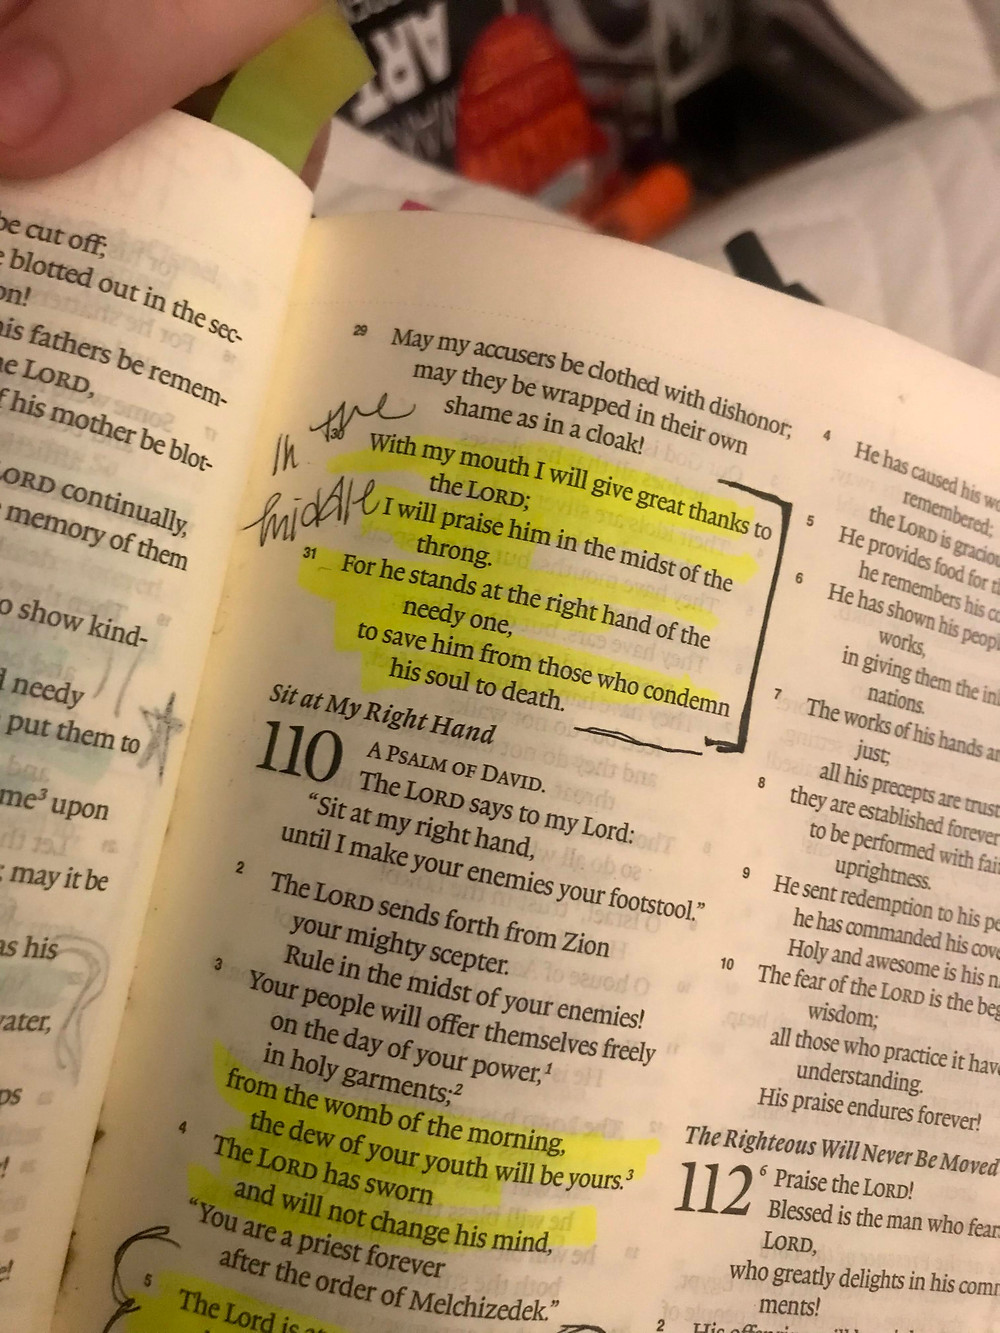 ART
be cut off;
blotted out in the sec-
on!
his fathers be remem-
he LORD,
f his mother be blot-
LORD continually,
memory of them
o show kind-
d needy
put them to
me³ upon
; may it be
as his
water,
ps
29 May my accusers be clothed with dishonor;
may they be wrapped in their own
shame as in a cloak!
In the
middle
30 With my mouth I will give great thanks to
the LORD;
I will praise him in the midst of the
throng.
31 For he stands at the right hand of the
needy one,
to save him from those who condemn
his soul to death.
Sit at My Right Hand
110 A PSALM OF DAVID.
The LORD says to my Lord:
“Sit at my right hand,
until I make your enemies your footstool.”
2 The LORD sends forth from Zion
your mighty scepter.
Rule in the midst of your enemies!
3 Your people will offer themselves freely
on the day of your power,¹
in holy garments;²
from the womb of the morning,
the dew of your youth will be yours.³
4 The LORD has sworn
and will not change his mind,
“You are a priest forever
after the order of Melchizedek.”
5 The Lord is at
4 He has caused his wo
remembered;
the LORD is graciou
5 He provides food for th
he remembers his co
6 He has shown his peopl
works,
in giving them the inh
nations.
7 The works of his hands ar
just;
all his precepts are trust
8 they are established forever
to be performed with fait
uprightness.
9 He sent redemption to his pe
he has commanded his cove
Holy and awesome is his n
10 The fear of the LORD is the beg
wisdom;
all those who practice it have
understanding.
His praise endures forever!
The Righteous Will Never Be Moved
112 ⁶ Praise the LORD!
Blessed is the man who fears
LORD,
who greatly delights in his comm
ments!
2 His offspring will be